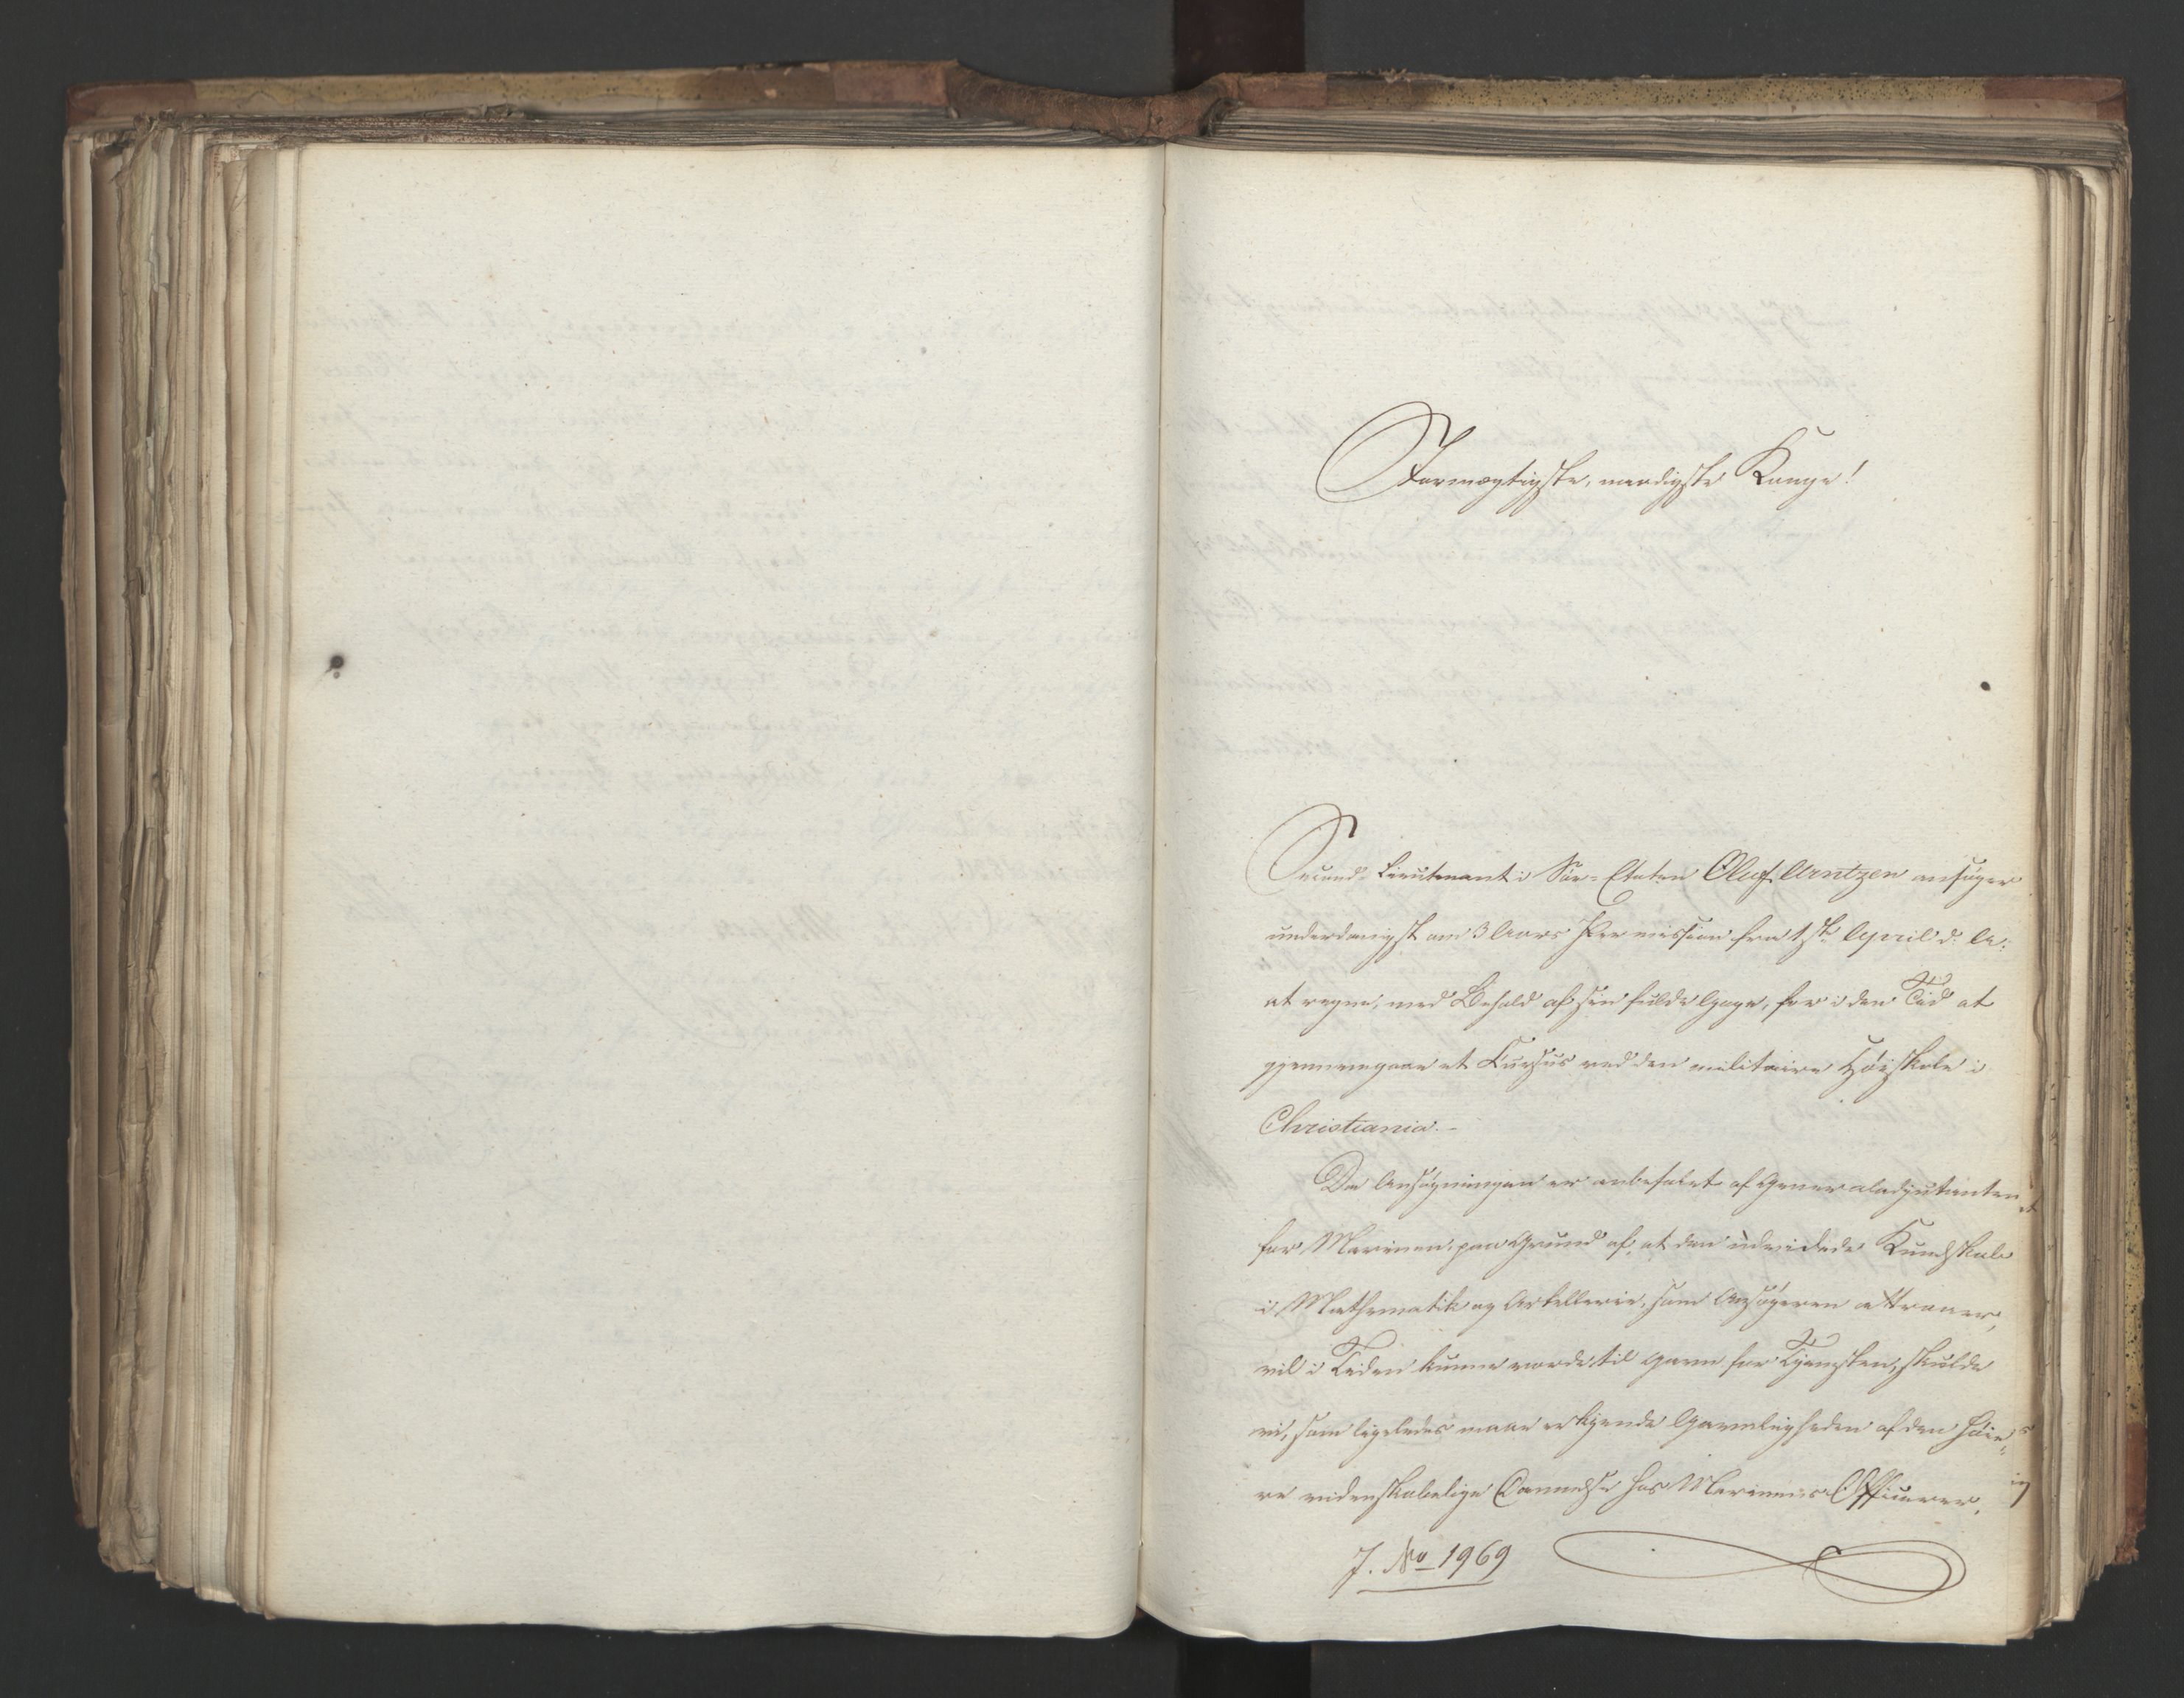 Stormægtigste, naadigste Konge!
Second-Lieutenant i Søe-Etaten Oluf Arntzen ansøger
underdanigst om 3 Aars Permission fra 1ste April d. A.
at regne, med Behold af sin fulde Gage, for i den Tid at
gjennemgaae et Cursus ved den militaire Høiskole i
Christiania.-
Da Ansøgningen er anbefalet af Generaladjutanten
for Marinen, paa Grund af, at den udvidede Kundskab
i Mathematik og Artellerie, som Ansøgeren attraaer,
vil i Tiden kunne vorde til Gavn for Tjenesten, skulde
vi, som ligeledes maae erkjende Gavnligheden af den høie-
re videnskabelige Dannelse hos Marinens Officierer,
J. No 1969